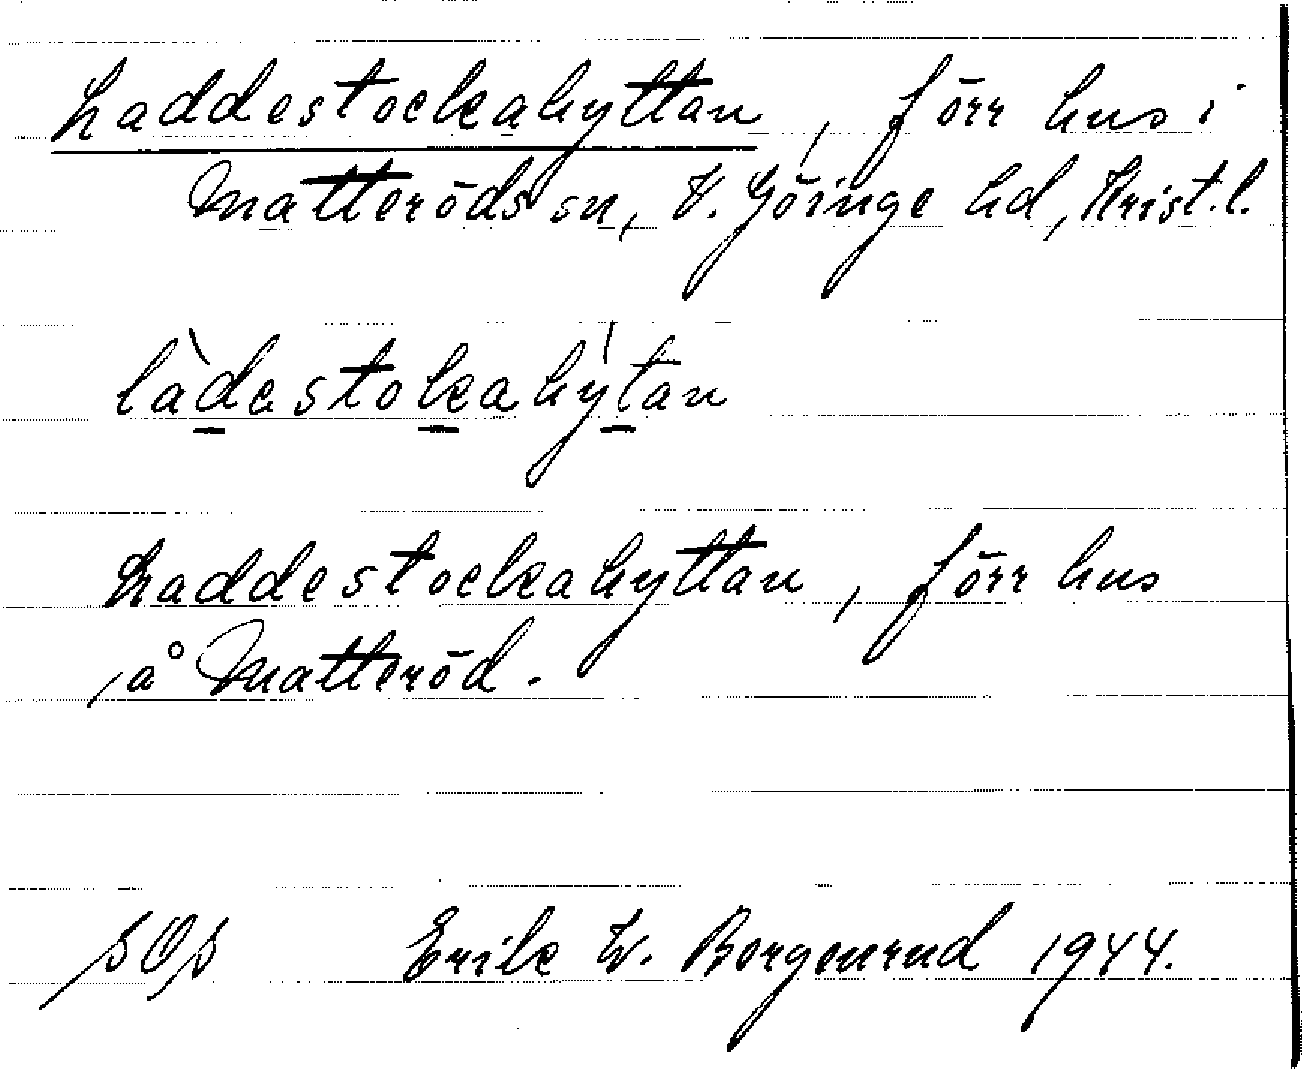 Laddestockahyttan, förr hus i
Matteröds sn, V. Göinge hd, Krist. l.
làdestokahy̍tan
Laddestockahyttan, förr hus
å Matteröd.
SOS Erik W. Borgenrud 1944.